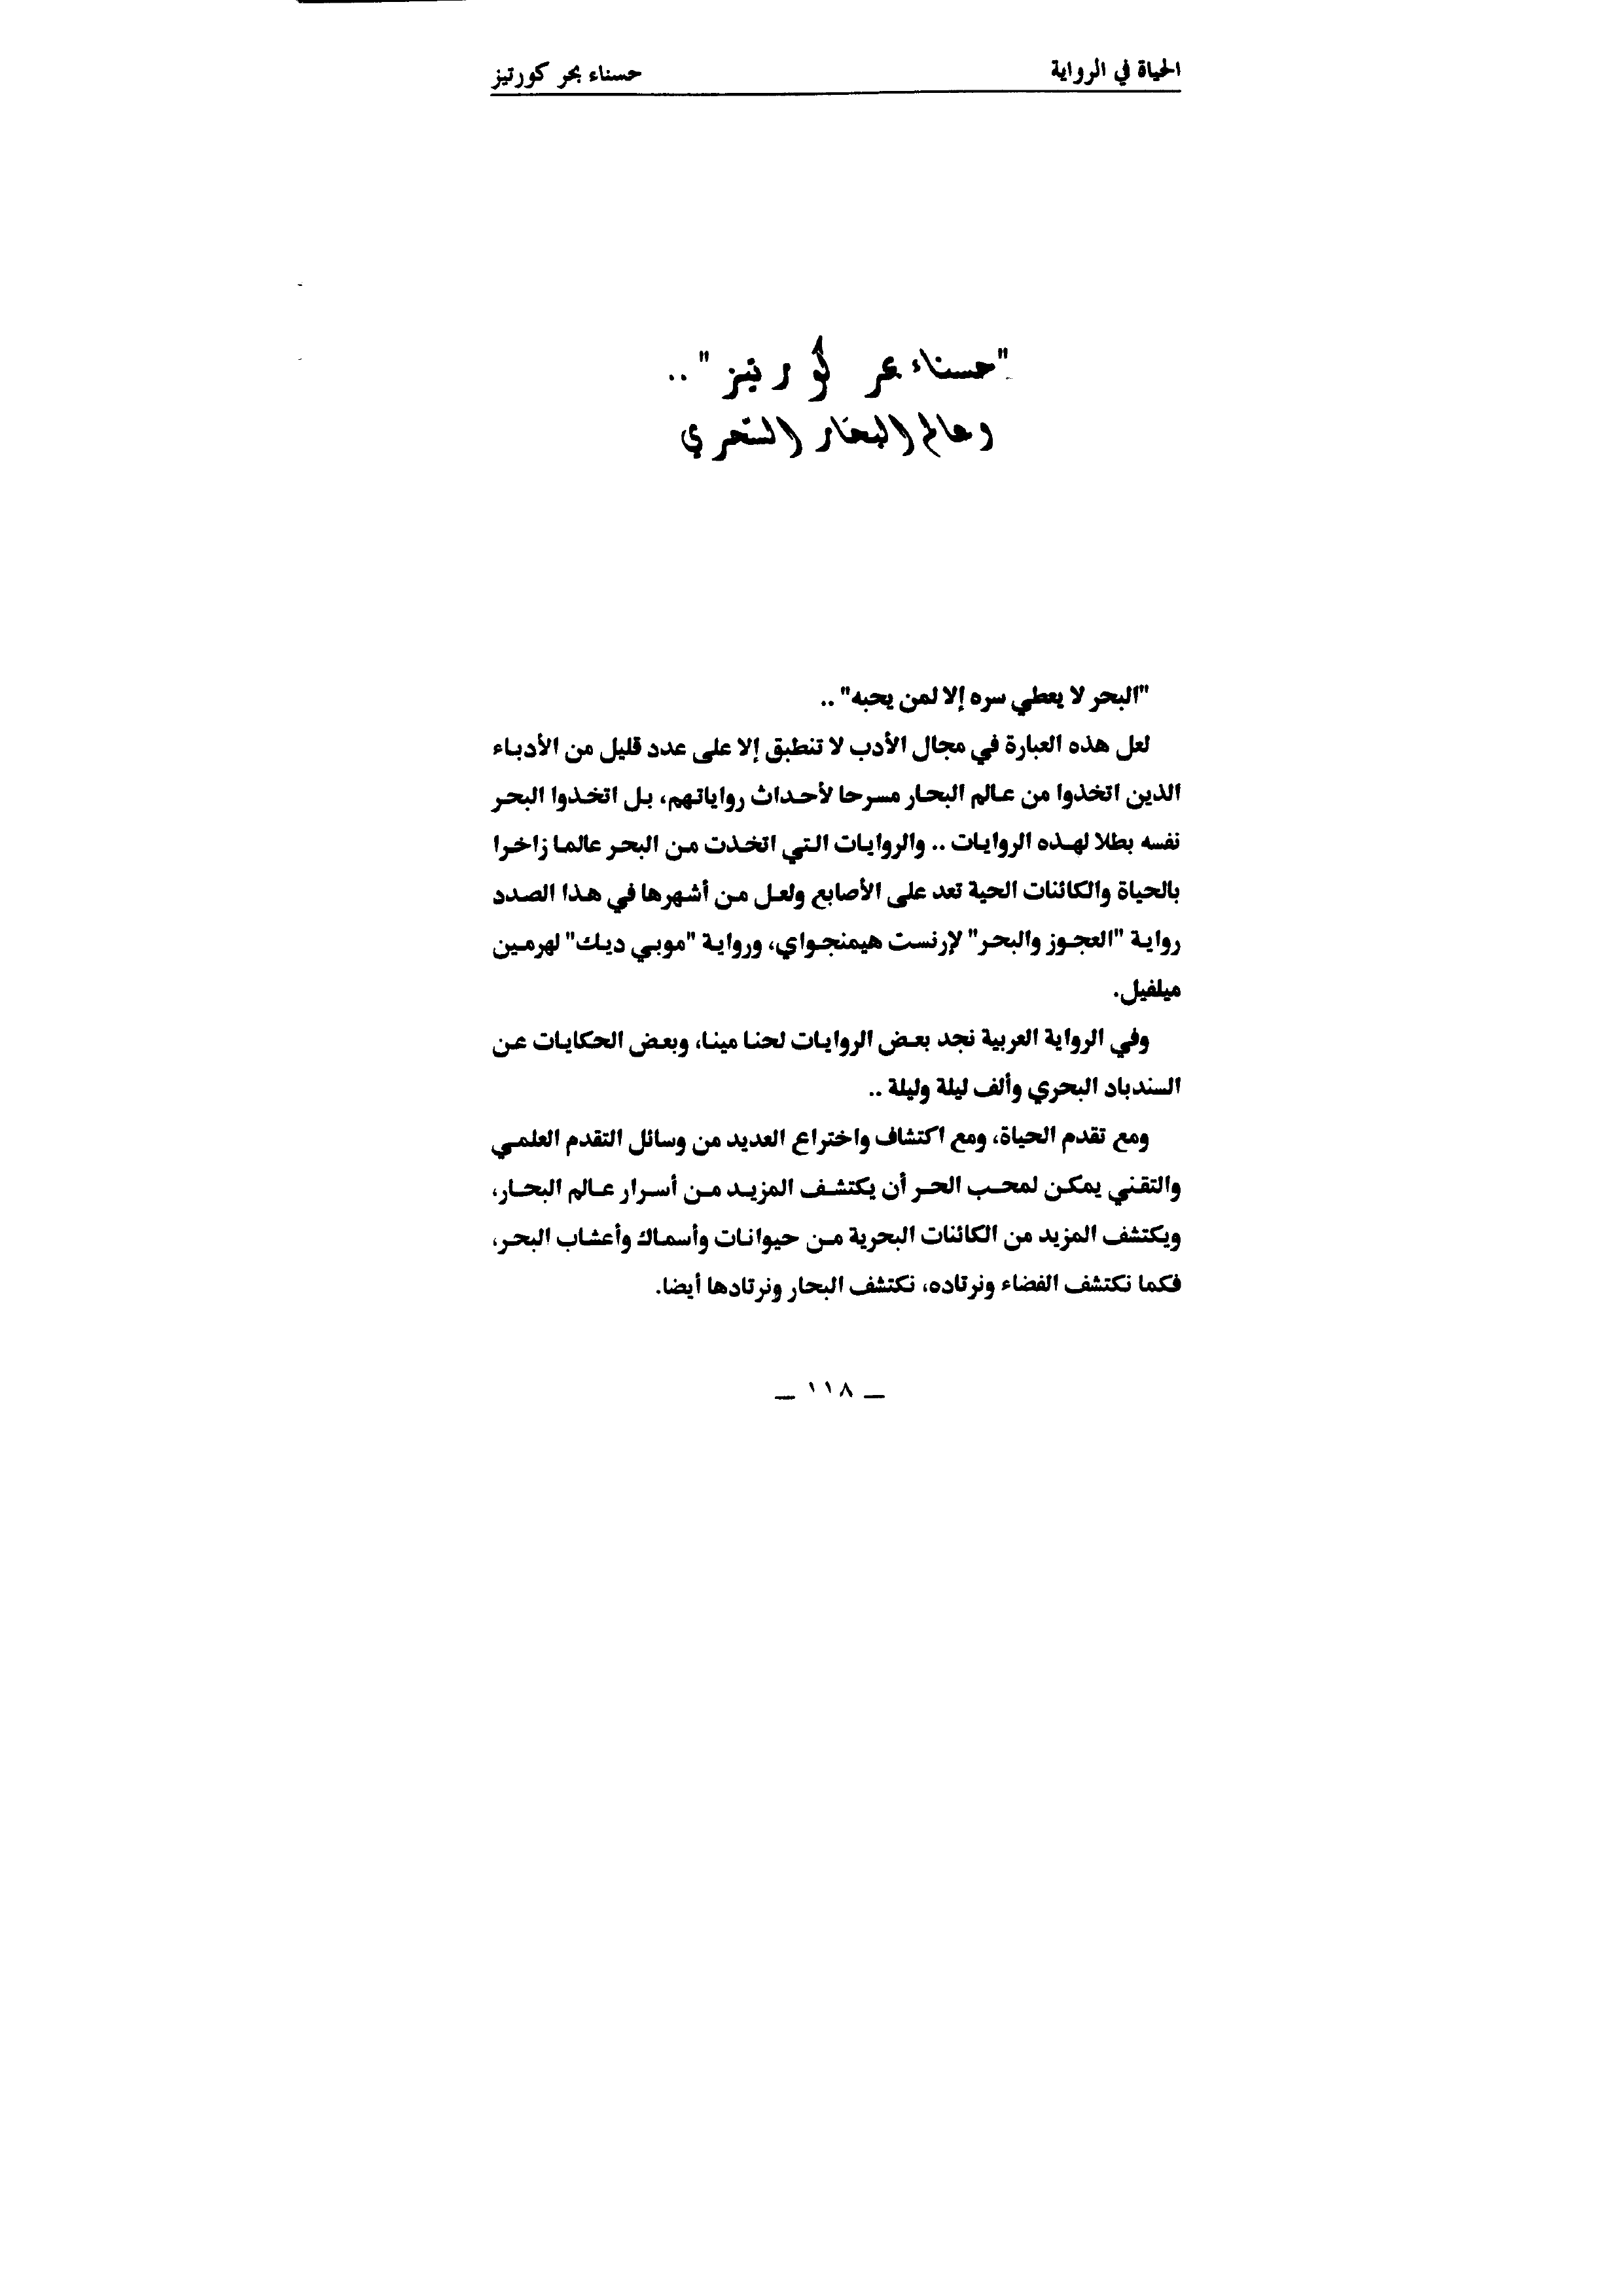 الحياة في الرواية
حسناء بحر كورتيز
"حسناء بحر كورتيز"..
وعالم البحار السحري
"البحر لا يعطي سره إلا لمن يحبه" ..
لعل هذه العبارة في مجال الأدب لا تنطبق إلا على عدد قليل من الأدباء
الذين اتخذوا من عالم البحار مسرحا لأحداث رواياتهم، بل اتخذوا البحر
نفسه بطلا لهذه الروايات .. والروايات التي اتخذت من البحر عالما زاخرا
بالحياة والكائنات الحية تعد على الأصابع ولعل من أشهرها في هذا الصدد
رواية "العجوز والبحر" لإرنست هيمنجواي، ورواية "موبي ديك" لهرمين
ميلفيل.
وفي الرواية العربية نجد بعض الروايات لحنا مينا، وبعض الحكايات عن
السندباد البحري وألف ليلة وليلة ..
ومع تقدم الحياة، ومع اكتشاف واختراع العديد من وسائل التقدم العلمي
والتقني يمكن لمحب الحر أن يكتشف المزيد من أسرار عالم البحار،
ويكتشف المزيد من الكائنات البحرية من حيوانات وأسماك وأعشاب البحر،
فكما نكتشف الفضاء ونرتاده، نكتشف البحار ونرتادها أيضا.
— ١١٨ —